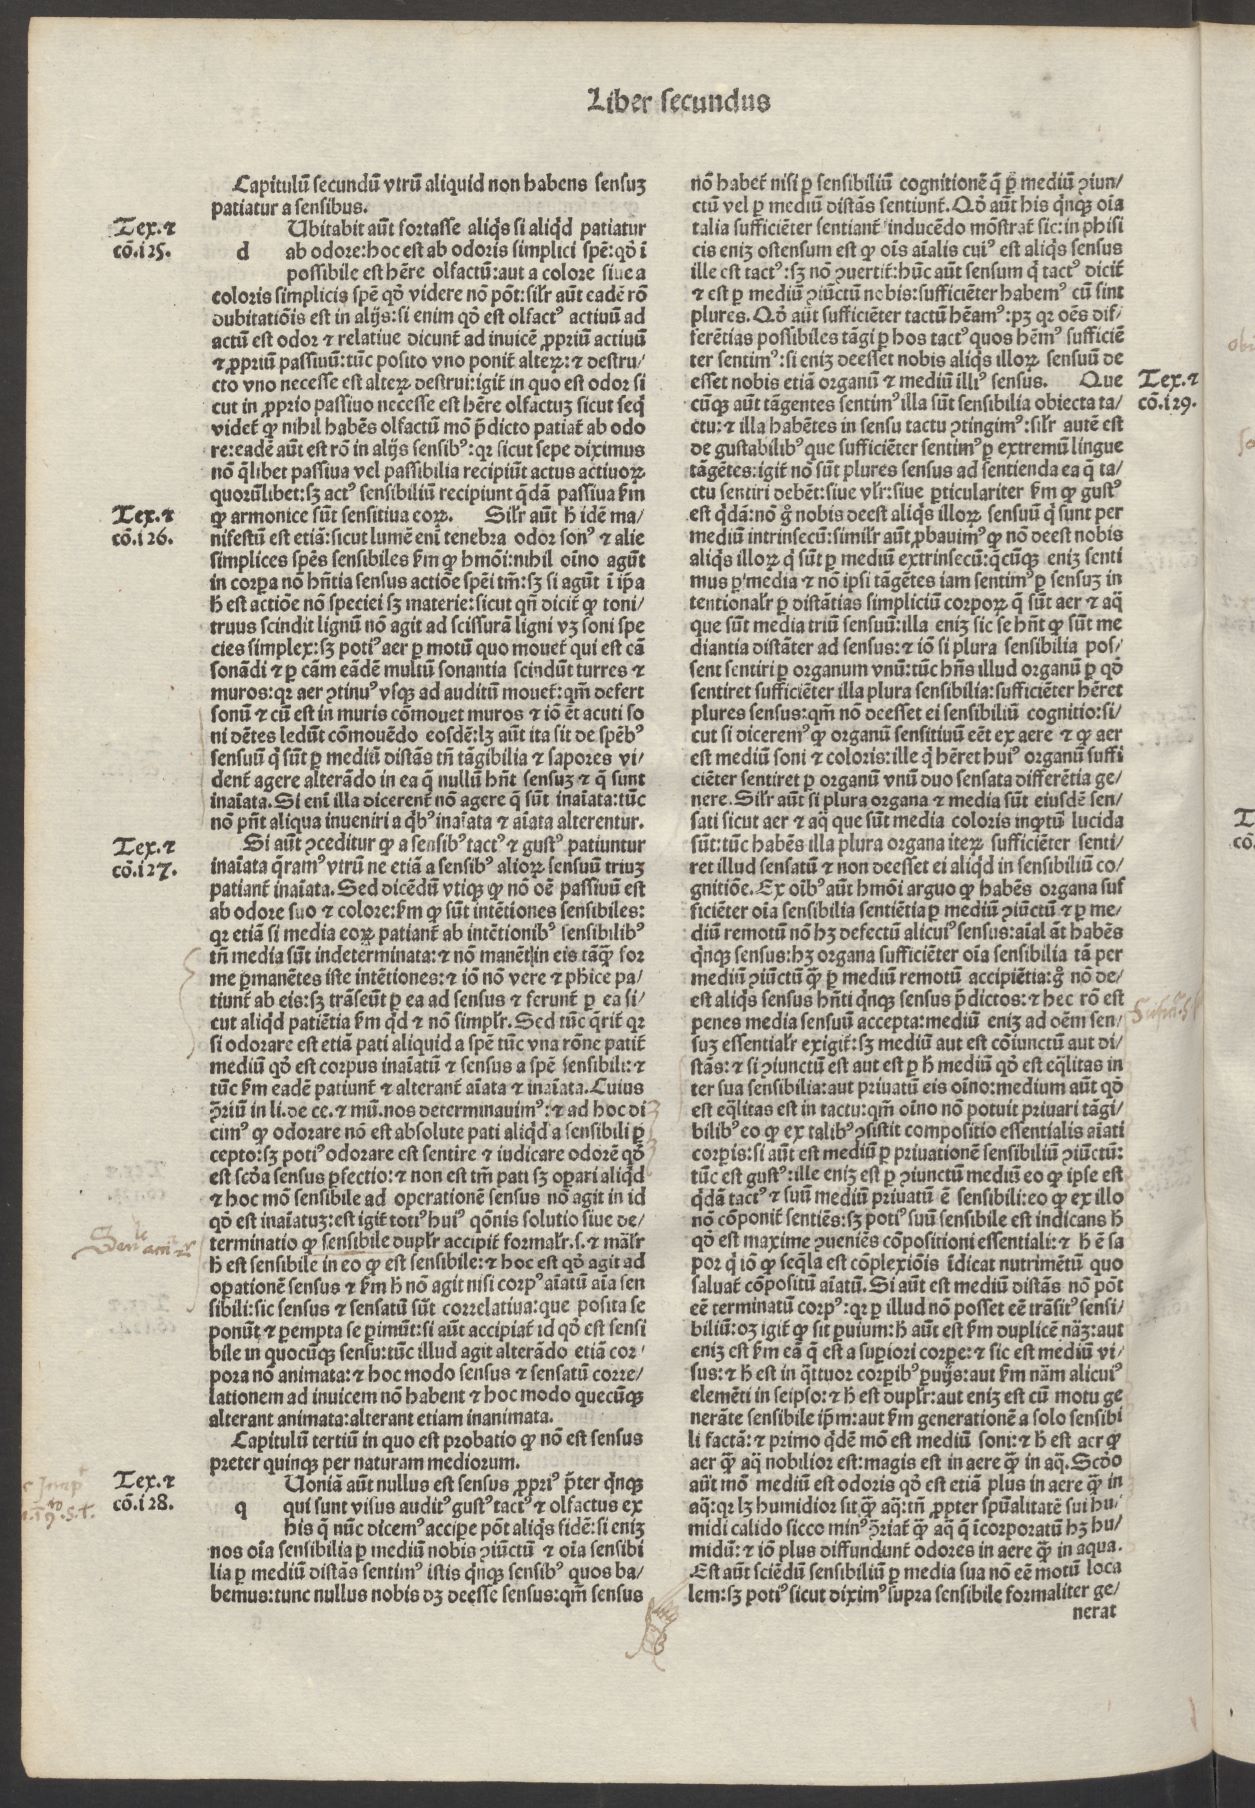 Liber secundus
Capitulū secundū vtrū aliquid non habens sensuꝫ
patiatur a sensibus.
Tex.⁊
cō.125.
Ubitabit aūt fortasse aliq̇s si aliq̇d patiatur
d ab odore:hoc est ab odoris simplici spē:qđ ī
possibile est hēre olfactū:aut a colore siue a
coloris simplicis spē qđ videre nō pōt:silr̄ aūt eadē rō
dubitatiōis est in alijs:si enim qđ est olfactꝰ actiuū ad
actū est odor ⁊ relatiue dicunt̄ ad inuicē ꝓpriū actiuū
⁊ ꝓpriū passiuū:tūc posito vno ponit̄ alterꝝ:⁊ destru/
cto vno necesse est alterꝝ destrui:igit̄ in quo est odor si
cut in ꝓprio passiuo necesse est hēre olfactuꝫ sicut seq̄
videt̄ ꝙ nihil habēs olfactū mō p̄dicto patiat̄ ab odo
re:eadē aūt est rō in alijs sensibꝰ:qr sicut sepe diximus
nō q̇libet passiua vel passibilia recipiūt actus actiuoꝝ
quorūlibet:sꝫ actꝰ sensibiliū recipiunt q̄dā passiua ẜm
ꝙ armonice sūt sensitiua eoꝝ. Silr̄ aūt ħ idē ma/
Tex.⁊
cō.126.
nifestū est etiā:sicut lumē eni tenebra odor sonꝰ ⁊ alie
simplices spēs sensibiles ẜm ꝙ hmōi:nihil oīno agūt
in corpa nō hn̄tia sensus actiōe spēi tm̄:sꝫ si agūt ī ip̄a
ħ est actiōe nō speciei sꝫ materie:sicut qn̄ dicit̄ ꝙ toni/
truus scindit lignū nō agit ad scissurā ligni vꝫ soni spe
cies simplex:sꝫ potiꝰ aer ꝑ motū quo mouet̄ qui est cā
sonādi ⁊ ꝑ cām eādē multiū sonantia scindūt turres ⁊
muros:qr aer ↄtinuꝰ vsqꝫ ad auditū mouet̄:qm̄ defert
sonū ⁊ cū est in muris cōmouet muros ⁊ iō ēt acuti so
ni dētes ledūt cōmouēdo eosdē:lꝫ aūt ita sit de spēbꝰ
sensuū q̇ sūt ꝑ mediū distās tn̄ tāgibilia ⁊ sapores vi/
dent̄ agere alterādo in ea q̄ nullū hn̄t sensuꝫ ⁊ q̄ sunt
inaīata. Si eni illa dicerent̄ nō agere q̄ sūt inaīata:tūc
nō pn̄t aliqua inueniri a q̇bꝰ inaīata ⁊ aīata alterentur.
Tex.⁊
cō.127.
Si aūt ↄceditur ꝙ a sensibꝰ tactꝰ ⁊ gustꝰ patiuntur
inaīata q̄ramꝰ vtrū ne etiā a sensibꝰ alioꝝ sensuū triuꝫ
patiant̄ inaīata. Sed dicēdū vtiqꝫ ꝙ nō oē passiuū est
ab odore suo ⁊ colore:ẜm ꝙ sūt intētiones sensibiles:
qr etiā si media eoꝝ patiant̄ ab intētionibꝰ sensibilibꝰ
tn̄ media sūt indeterminata:⁊ nō manēt in eis tāqꝫ for
me ꝑmanētes iste intētiones:⁊ iō nō vere ⁊ phice pa/
tiunt̄ ab eis:sꝫ trāseūt ꝑ ea ad sensus ⁊ ferunt̄ ꝑ ea si/
cut aliq̇d patiētia ẜm q̇d ⁊ nō simplr̄. Sed tūc q̄rit̄ qr
si odorare est etiā pati aliquid a spē tūc vna rōne patit̄
mediū qđ est corpus inaīatū ⁊ sensus a spē sensibili:⁊
tūc ẜm eadē patiunt̄ ⁊ alterant̄ aīata ⁊ inaīata. Cuius
ↄ̄riū in li.de ce.⁊ mū.nos determinauimꝰ:⁊ ad hoc di
cimꝰ ꝙ odorare nō est absolute pati aliq̇d a sensibili ꝑ
cepto:sꝫ potiꝰ odorare est sentire ⁊ iudicare odorē qđ
est scđa sensus ꝑfectio:⁊ non est tm̄ pati sꝫ oꝑari aliq̇d
⁊ hoc mō sensibile ad operationē sensus nō agit in id
qđ est inaīatuꝫ:est igit̄ totiꝰ huiꝰ qōnis solutio siue de/
terminatio ꝙ sensibile duplr̄ accipit̄ formalr̄.s.⁊ māl̄r
ħ est sensibile in eo ꝙ est sensibile:⁊ hoc est qđ agit ad
oꝑationē sensus ⁊ ẜm ħ nō agit nisi corpꝰ aīatū aīa sen
sibili:sic sensus ⁊ sensatū sūt correlatiua:que posita se
ponūt ⁊ ꝑempta se ꝑimūt:si aūt accipiat̄ id qđ est sensi
bile in quocūqꝫ sensu:tūc illud agit alterādo etiā cor/
pora nō animata:⁊ hoc modo sensus ⁊ sensatū corre/
lationem ad inuicem nō habent ⁊ hoc modo quecūqꝫ
alterant animata:alterant etiam inanimata.
Capitulū tertiū in quo est probatio ꝙ nō est sensus
preter quinqꝫ per naturam mediorum.
Tex.⁊
cō.128.
Uoniā aūt nullus est sensus ꝓpriꝰ p̄ter q̇nqꝫ
q qui sunt visus auditꝰ gustꝰ tactꝰ ⁊ olfactus ex
his q̄ nūc dicemꝰ accipe pōt aliq̇s fidē:si eniꝫ
nos oīa sensibilia ꝑ mediū nobis ↄiūctū ⁊ oīa sensibi
lia ꝑ mediū distās sentimꝰ istis q̇nqꝫ sensibꝰ quos ha/
bemus:tunc nullus nobis dꝫ deesse sensus:qm̄ sensus
nō habet̄ nisi ꝑ sensibiliū cognitionē q̄ ꝑ mediū ↄiun/
ctū vel ꝑ mediū distās sentiunt̄. Qđ aūt his q̇nqꝫ oīa
talia sufficiēter sentiant̄ inducēdo mōstrat̄ sic:in phisi
cis eniꝫ ostensum est ꝙ oīs aīalis cuiꝰ est aliq̇s sensus
ille est tactꝰ:sꝫ nō ↄuertit̄:hūc aūt sensum q̇ tactꝰ dicit̄
⁊ est ꝑ mediū ↄiūctū nobis:sufficiēter habemꝰ cū sint
plures. Qđ aūt sufficiēter tactū hēamꝰ:pꝫ qr oēs dif/
ferētias possibiles tāgi ꝑ hos tactꝰ quos hēmꝰ sufficiē
ter sentimꝰ:si eniꝫ deesset nobis aliq̇s illoꝝ sensuū de
esset nobis etiā organū ⁊ mediū illiꝰ sensus. Que
Tex.⁊
cō.129.
cūqꝫ aūt tāgentes sentimꝰ illa sūt sensibilia obiecta ta/
ctu:⁊ illa habētes in sensu tactu ↄtingimꝰ:silr̄ autē est
de gustabilibꝰ que sufficiēter sentimꝰ ꝑ extremū lingue
tāgētes:igit̄ nō sūt plures sensus ad sentienda ea q̄ ta/
ctu sentiri debēt:siue vlr̄:siue ꝑticulariter ẜm ꝙ gustꝰ
est q̇dā:nō g̊ nobis deest aliq̇s illoꝝ sensuū q̇ sunt per
mediū intrinsecū:similr̄ aūt ꝓbauimꝰ ꝙ nō deest nobis
aliq̇s illoꝝ q̇ sūt ꝑ mediū extrinsecū:q̄cūqꝫ eniꝫ senti
mus ꝑ media ⁊ nō ipsi tāgētes iam sentimꝰ ꝑ sensuꝫ in
tentionalr̄ ꝑ distātias simpliciū corpoꝝ q̄ sūt aer ⁊ aq̄
que sūt media triū sensuū:illa eniꝫ sic se hn̄t ꝙ sūt me
diantia distāter ad sensus:⁊ iō si plura sensibilia pos/
sent sentiri ꝑ organum vnū:tūc hn̄s illud organū ꝑ qđ
sentiret sufficiēter illa plura sensibilia:sufficiēter hēret
plures sensus:qm̄ nō deesset ei sensibiliū cognitio:si/
cut si diceremꝰ ꝙ organū sensitiuū eēt ex aere ⁊ ꝙ aer
est mediū soni ⁊ coloris:ille q̇ hēret huiꝰ organū suffi
ciēter sentiret ꝑ organū vnū duo sensata differētia ge/
nere. Silr̄ aūt si plura organa ⁊ media sūt eiusdē sen/
sati sicut aer ⁊ aq̄ que sūt media coloris inq̄tū lucida
sūt:tūc habēs illa plura organa iteꝝ sufficiēter senti/
ret illud sensatū ⁊ non deesset ei aliq̇d in sensibiliū co/
gnitiōe. Ex oībꝰ aūt hmōi arguo ꝙ habēs organa suf
ficiēter oīa sensibilia sentiētia ꝑ mediū ↄiūctū ⁊ ꝑ me/
diū remotū nō hꝫ defectū alicuiꝰ sensus:aīal āt habēs
q̇nqꝫ sensus:hꝫ organa sufficiēter oīa sensibilia tā per
mediū ↄiūctū qꝫ̄ ꝑ mediū remotū accipiētia:g̊ nō de/
est aliq̇s sensus hn̄ti q̇nqꝫ sensus p̄dictos:⁊ hec rō est
penes media sensuū accepta:mediū eniꝫ ad oēm sen/
suꝫ essentialr̄ exigit̄:sꝫ mediū aut est cōiunctū aut di/
stās:⁊ si ↄiunctū est aut est ꝑ ħ mediū qđ est eq̄litas in
ter sua sensibilia:aut priuatū eis oīno:medium aūt qđ
est eq̄litas est in tactu:qm̄ oīno nō potuit priuari tāgi/
bilibꝰ eo ꝙ ex talibꝰ ↄsistit compositio essentialis aīati
corpis:si aūt est mediū ꝑ priuationē sensibiliū ↄiūctū:
tūc est gustꝰ:ille eniꝫ est ꝑ ↄiunctū mediū eo ꝙ ipse est
q̇dā tactꝰ ⁊ suū mediū priuatū ē sensibili:eo ꝙ ex illo
nō cōponit̄ sentiēs:sꝫ potiꝰ suū sensibile est indicans ħ
qđ est maxime ↄueniēs cōpositioni essentiali:⁊ ħ ē sa
por q̇ iō ꝙ seq̄la est cōplexiōis īdicat nutrimētū quo
saluat̄ cōpositū aīatū. Si aūt est mediū distās nō pōt
eē terminatū corpꝰ:qr ꝑ illud nō posset eē trāsitꝰ sensi/
biliū:oꝫ igit̄ ꝙ sit ꝑuium:ħ aūt est ẜm duplicē nāꝫ:aut
eniꝫ est ẜm eā q̄ est a suꝑiori corpe:⁊ sic est mediū vi/
sus:⁊ ħ est in q̄ttuor corpibꝰ ꝑuijs:aut ẜm nām alicuiꝰ
elemēti in seipso:⁊ ħ est duplr̄:aut eniꝫ est cū motu ge
nerāte sensibile ip̄m:aut ẜm generationē a solo sensibi
li factā:⁊ primo q̇dē mō est mediū soni:⁊ ħ est aer ꝙ
aer qꝫ̄ aq̄ nobilior est:magis est in aere qꝫ̄ in aq̄. Scđo
aūt mō mediū est odoris qđ est etiā plus in aere qꝫ̄ in
aq̄:qr lꝫ humidior sit qꝫ̄ aq̄:tn̄ ꝓpter spūalitatē sui hu/
midi calido sicco minꝰ ↄ̄riat̄ qꝫ̄ aq̄ q̄ īcorporatū hꝫ hu/
midū:⁊ iō plus diffundunt̄ odores in aere qꝫ̄ in aqua.
Est aūt sciēdū sensibiliū ꝑ media sua nō eē motū loca
lem:sꝫ potiꝰ sicut diximꝰ supra sensibile formaliter ge/
nerat